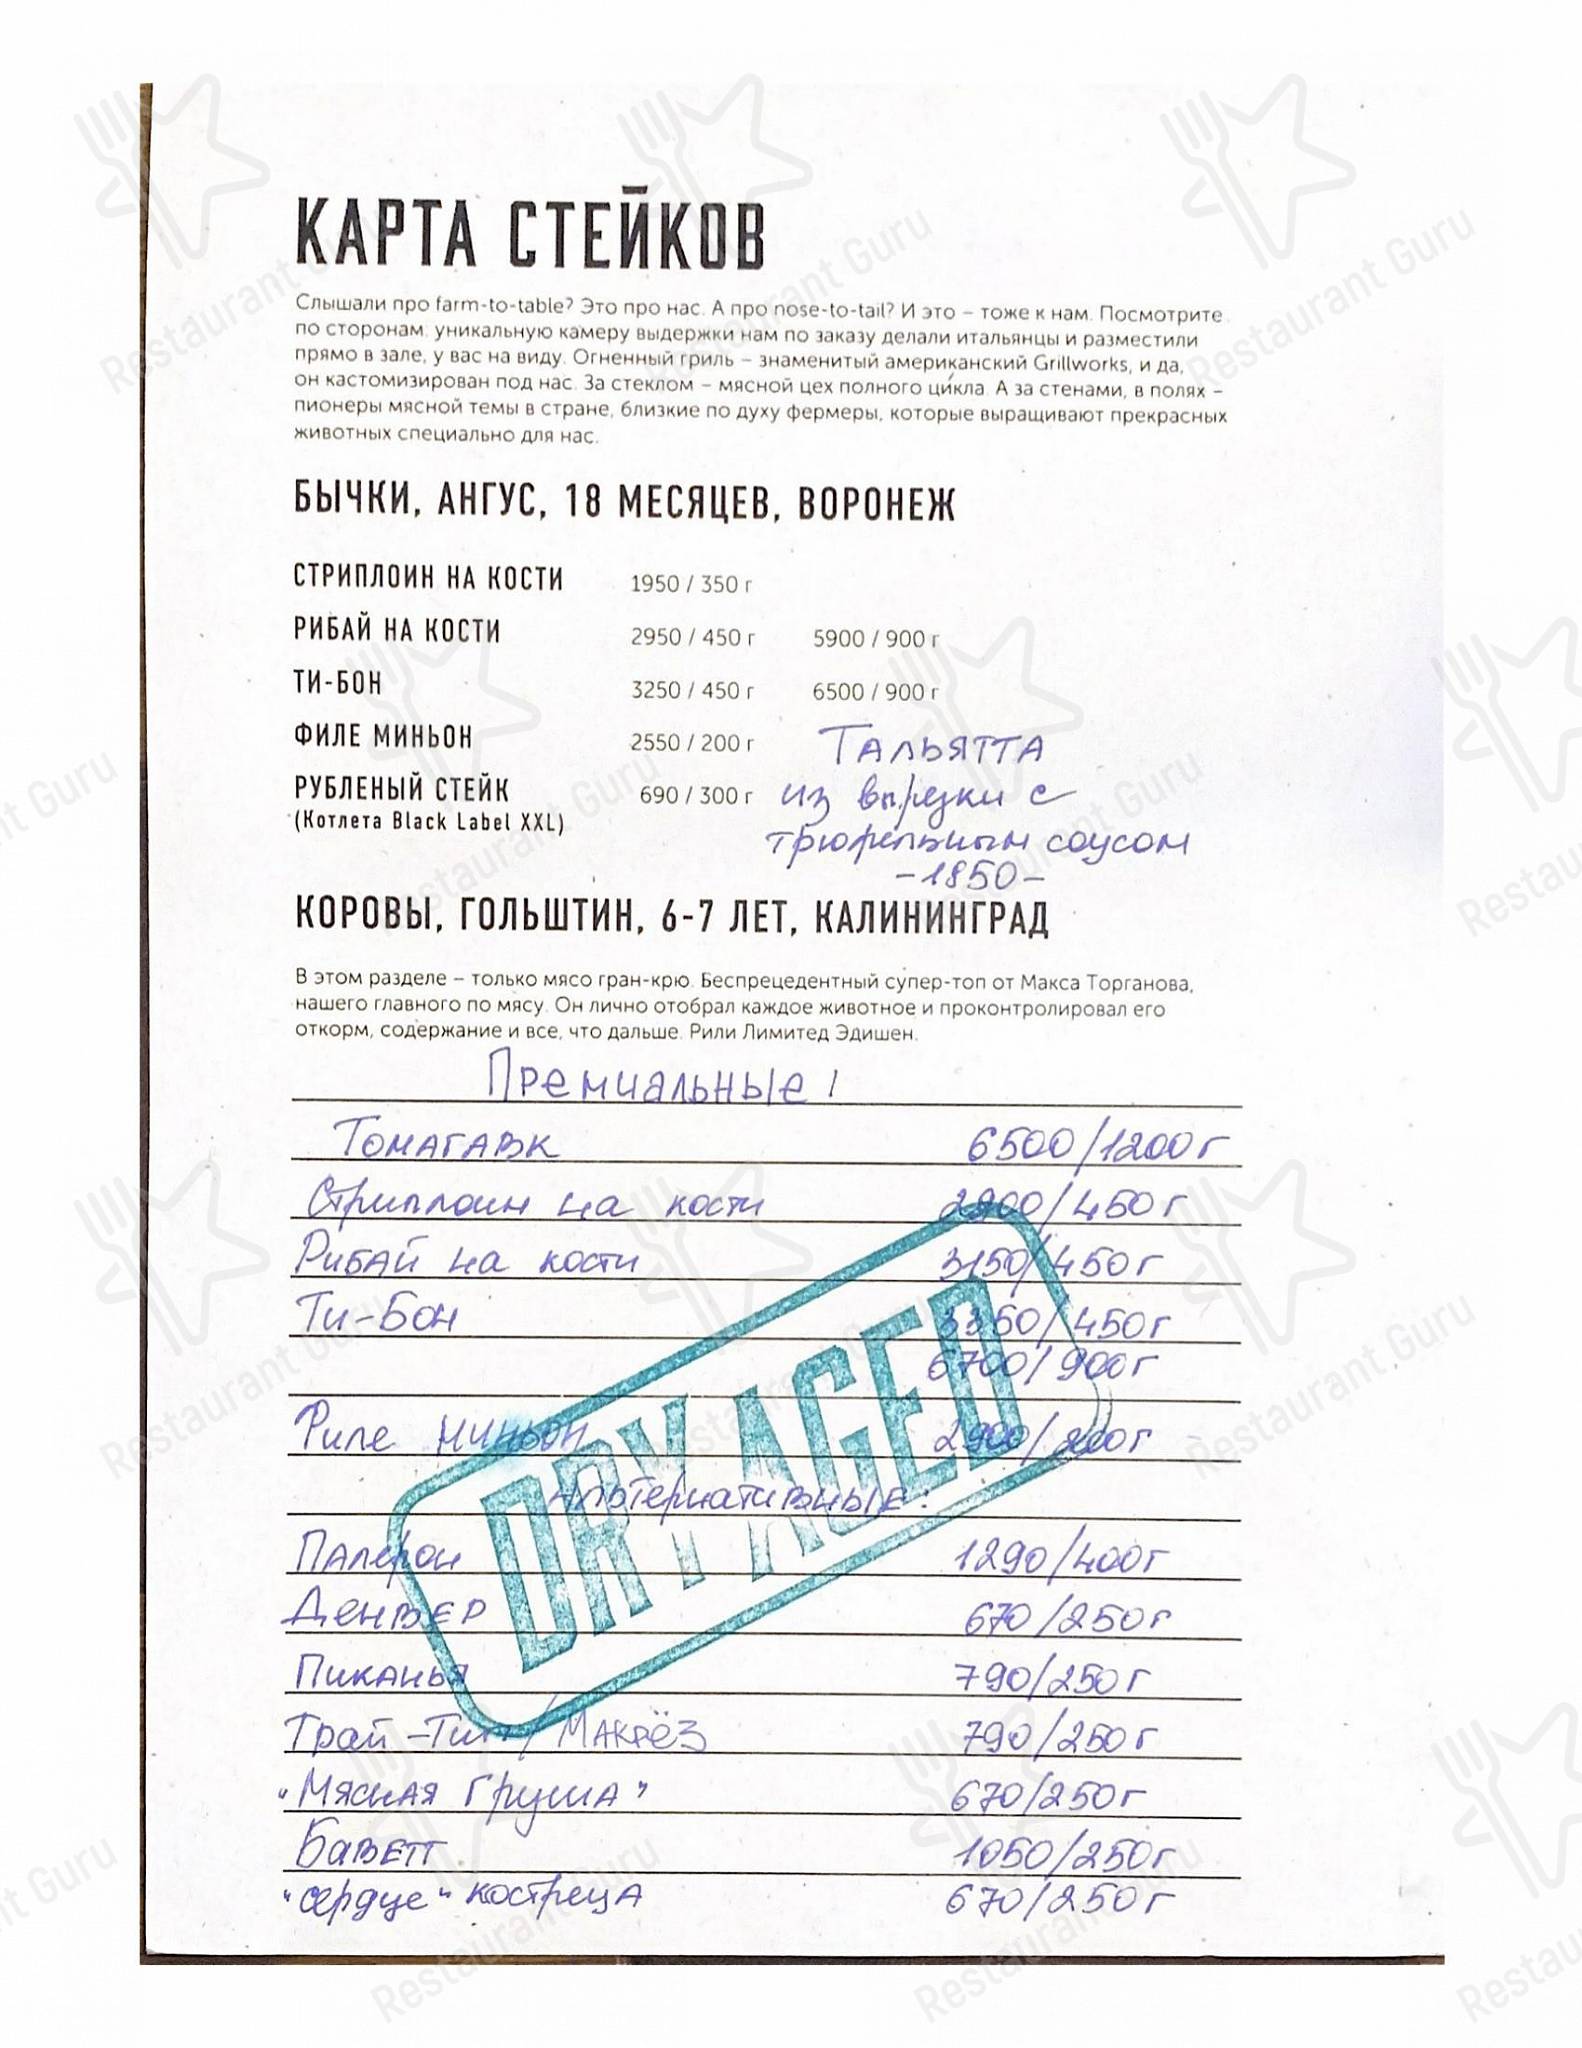 КАРТА СТЕЙКОВ
Слышали про farm-to-table? Это про нас. А про nose-to-tail? И это – тоже к нам. Посмотрите
по сторонам: уникальную камеру выдержки нам по заказу делали итальянцы и разместили
прямо в зале, у вас на виду. Огненный гриль – знаменитый американский Grillworks, и да,
он кастомизирован под нас. За стеклом – мясной цех полного цикла. А за стенами, в полях –
пионеры мясной темы в стране, близкие по духу фермеры, которые выращивают прекрасных
животных специально для нас.
БЫЧКИ, АНГУС, 18 МЕСЯЦЕВ, ВОРОНЕЖ
СТРИПЛОИН НА КОСТИ 1950 / 350 г
РИБАЙ НА КОСТИ 2950 / 450 г 5900 / 900 г
ТИ-БОН 3250 / 450 г 6500 / 900 г
ФИЛЕ МИНЬОН 2550 / 200 г
РУБЛЕНЫЙ СТЕЙК 690 / 300 г
(Котлета Black Label XXL)
Тальятта
из вырезки с
трюфельным соусом
-1850-
КОРОВЫ, ГОЛЬШТИН, 6-7 ЛЕТ, КАЛИНИНГРАД
В этом разделе – только мясо гран-крю. Беспрецедентный супер-топ от Макса Торганова,
нашего главного по мясу. Он лично отобрал каждое животное и проконтролировал его
откорм, содержание и все, что дальше. Рили Лимитед Эдишен.
Премиальные!
Томагавк 6500/1200г
Стриплоин на кости 2900/450г
Рибай на кости 3150/450г
Ти-Бон 3350/450г
6700/900г
Филе миньон 2900/200г
DRY AGED
Альтернативные:
Палерон 1290/400г
Денвер 670/250г
Пиканья 790/250г
Трай-Тип/Макрёз 790/250г
"Мясная груша" 670/250г
Баветт 1050/250г
"сердце" костреца 670/250г
Restaurant Guru